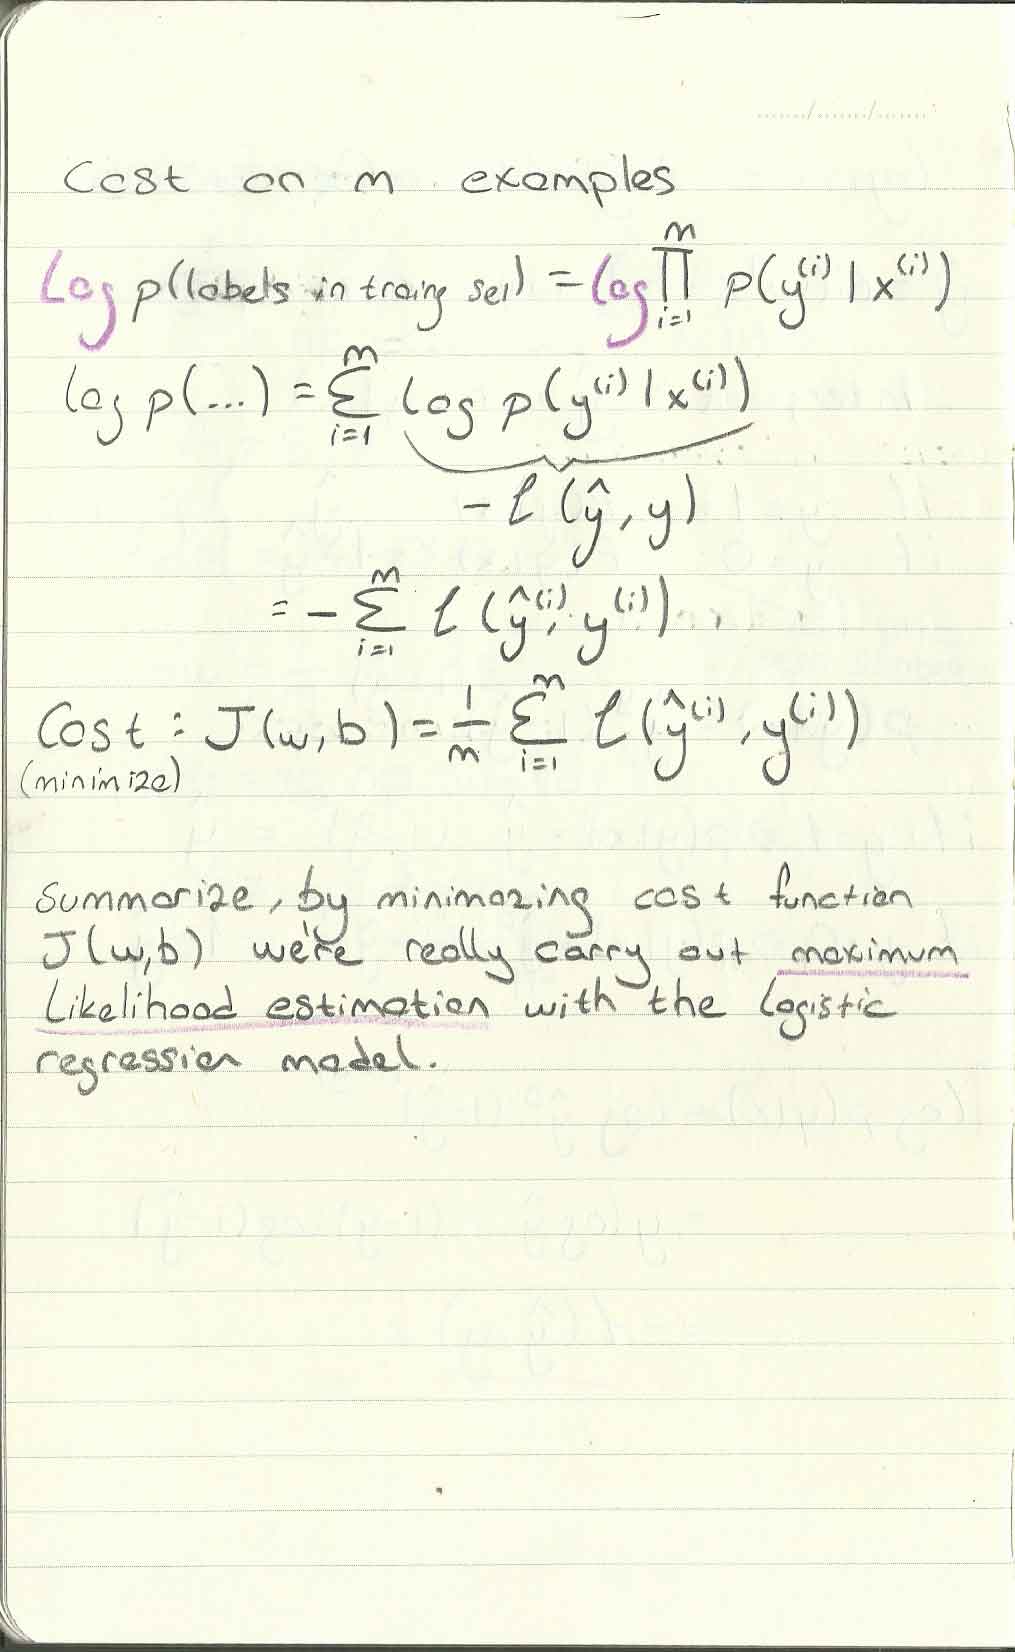 Cost on m examples
log p(labels in traing set) = log ∏_{i=1}^{m} p(y^{(i)} | x^{(i)})
log p(...) = ∑_{i=1}^{m} log p(y^{(i)} | x^{(i)})
- l(ŷ, y)
= - ∑_{i=1}^{m} l(ŷ^{(i)}, y^{(i)})
Cost : J(w, b) = 1/m ∑_{i=1}^{m} l(ŷ^{(i)}, y^{(i)})
(minimize)
Summarize, by minimazing cost function
J(w,b) we're really carry out maximum
likelihood estimation with the logistic
regression model.